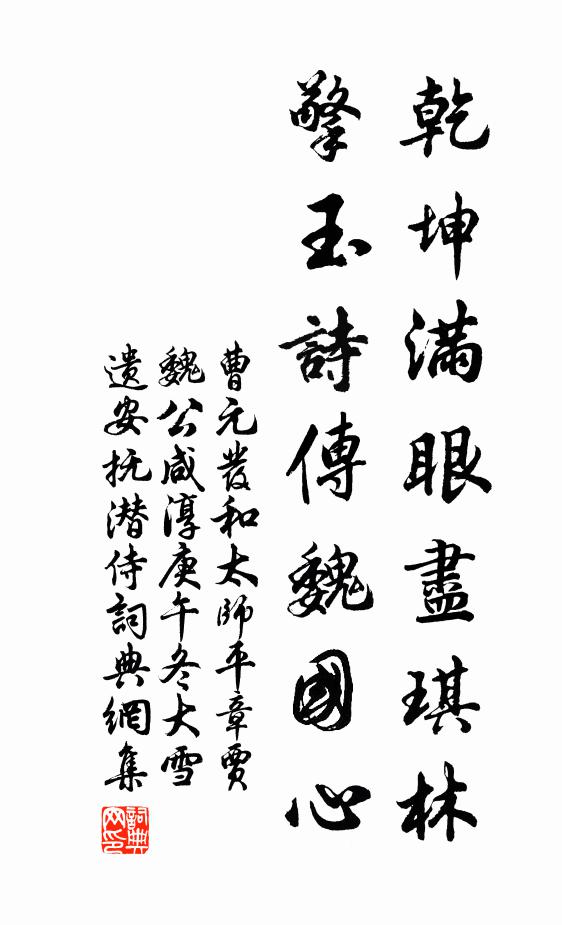 乾坤滿眼盡琪林
擎玉詩傳魏國心
曹元發和太師平章賈
魏公咸淳庚午冬大雪
遺安抚潜侍詞典網集
詞典网印